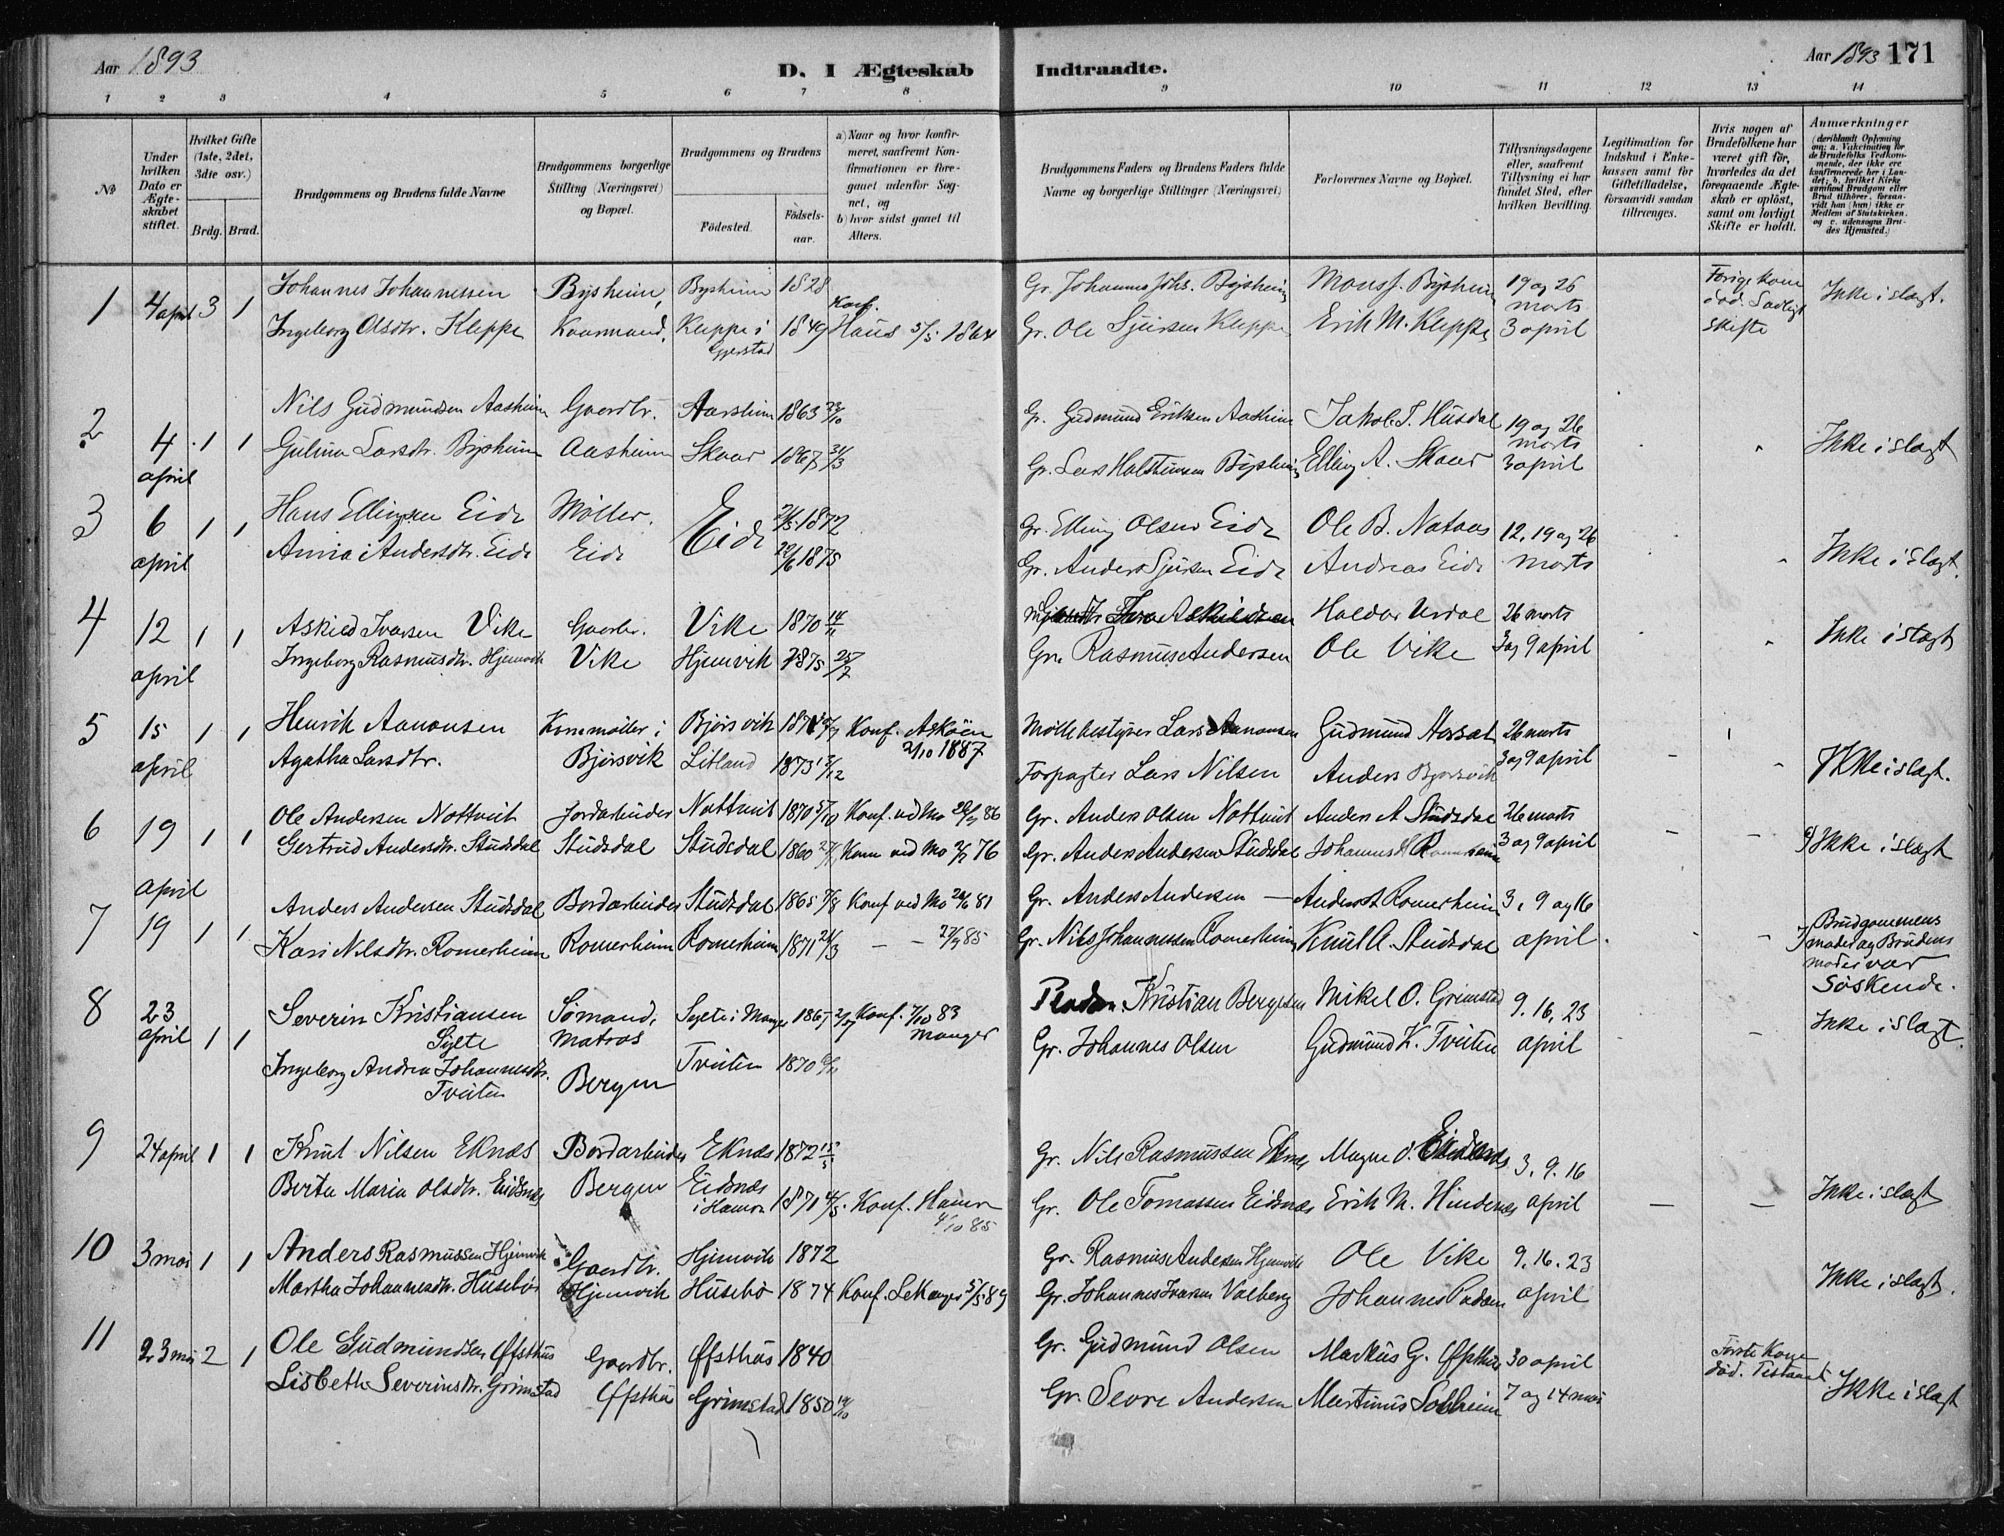 Aar 1893
D. I Ægteskab Indtraadte.
Aar 1893 171
1 2 3 4 5 6 7 8 9 10 11 12 13 14
No
Under hvilken Dato er Ægteskabet stiftet.
Hvilket Gifte (1ste, 2det, 3die osv.)
Brdg. Brud.
Brudgommens og Brudens fulde Navne
Brudgommens borgerlige Stilling (Næringsvei) og Bopæl.
Brudgommens og Brudens
Födested.
Födselsaar.
a) Naar og hvor konfirmeret, saafremt Konfirmationen er foregaaet udenfor Sognet, og
b) hvor sidst gaaet til Alters.
Brudgommens Faders og Brudens Faders fulde Navne og borgerlige Stillinger (Næringsvei)
Forlovernes Navne og Bopæl.
Tillysningsdagene eller, saafremt Tillysning ei har fundet Sted, efter hvilken Bevilling.
Legitimation for Indskud i Enkekassen samt for Giftetilladelse, forsaavidt saadan tiltrænges.
Hvis nogen af Brudefolkene har været gift för, hvorledes da det foregaaende Ægteskab er oplöst, samt om lovligt Skifte er holdt.
Anmærkninger (deriblandt Oplysning om: a. Vakcination for de Brudefolks Vedkommende, der ikke ere konfirmerede her i Landet; b. hvilket Kirkesamfund Brudgom eller Brud tilhörer, forsaavidt han (hun) ikke er Medlem af Statskirken, og c. udensogns Brudes Hjemsted.)
1 4 april 3 1 Johannes Johannessen Bysheim, Bysheim 1828 Gr. Johannes Johs. Bysheim Mons J. Bysheim 19 og 26 marts Forige kone död. Lovligt skifte Ikke i slægt.
Ingeborg Olsdtr. Kleppe Kaarmand. Kleppe i Gjerstad 1849 Konf. Haus 5/5 1864 Gr. Ole Sjursen Kleppe Erik M. Kleppe 3 april
2 4 april 1 1 Nils Gudmundsen Aasheim Gaardbr. Aarsheim 1863 Gr. Gudmund Eriksen Aasheim Jakob T. Husdal 19 og 26 marts Ikke i slægt
Gulina Larsdtr. Bysheim Aasheim Skaar 1867 Gr. Lars Halsteinsen Bysheim Elling A. Skaar 3 april
3 6 april 1 1 Hans Ellingsen Eide Møller. Eide 1872 Gr. Elling Olsen Eide Ole B. Nataas 12, 19 og 26 Ikke i slægt.
Anna Andersdtr. Eide Eide 1875 Gr. Anders Sjursen Eide Andreas Eide marts
4 12 april 1 1 Askild Ivarsen Vike Gaardbr. Vike 1870 Haldor Urdal 26 marts Ikke i slægt
Ingeborg Rasmusdtr. Hjemvik Vike Hjemvik 1875 Gr. Rasmus Andersen Ole Vike 3 og 9 april
5 15 april 1 1 Henrik Aanonsen Kornmøller i Bjørsvik Konf. Askøen 2/10 1887 Møllebestyrer Lars Aanonsen Gudmund 26 marts Ikke i slægt.
Agatha Larsdtr. Bjørsvik Litland 1873 Forpagter Lars Nilsen Anders Bjørsvik 3 og 9 april
6 19 april 1 1 Ole Andersen Nottveit Jordarbeider Nottveit 1870 Konf. ved Mo 86 Gr. Anders Olsen Nottveit Anders A Studsdal 26 marts Ikke i slægt
Gertrud Andersdtr. Studsdal Studsdal Studsdal 1860 Konf ved Mo 76 Gr. Anders Andersen Studsdal Johannes Romerheim 3 og 9 april
7 19 1 1 Anders Andersen Studsdal Bordarbeider Studsdal 1865 Konf ved Mo 81 Gr. Anders Andersen — Anders Romerheim 3, 9 og 16 Brudgommens moder og Brudens moder var Söskende.
Kari Nilsdtr. Romerheim Romerheim Romerheim 1871 — — 85 Gr. Nils Johannessen Romerheim Knut A. Studsdal april
8 23 april 1 1 Severin Kristiansen Sylte Sømand, matros Sylte i Manger 1867 Konf. 7/10 83 Manger Kristian Bergesen Mikel O. Grimstad 9, 16, 23 Ikke i slægt.
Ingeborg Andrea Johannesdtr. Tveiten Bergen Tveiten 1870 Gr. Johannes Olsen Gudmund K. Tveiten april
9 24 april 1 1 Knut Nilsen Eknæs Bordarbeider Eknæs 1872 15/5 Gr. Nils Rasmussen Eknæs Magne O. 3, 9, 16 Ikke i slægt
Berta Maria Olsdtr. Eidsnes Bergen Eidsnæs i Hamre 1870 Konf. Hamre 4/10 85 Gr. Ole Tomassen Eidsnæs Erik M. Hindenes april
10 3 mai 1 1 Anders Rasmussen Hjemvik Gaardbr. Hjemvik 1872 Gr. Rasmus Andersen Hjemvik Ole Vike 9, 16, 23 Ikke i slægt.
Martha Johannesdtr. Husebø Hjemvik Husebø 1874 Konf. Lekanger 5/5 89 Gr. Johannes Ivarsen Valberg Johannes april
11 23 mai 2 1 Ole Gudmundsen Øfsthus Gaardbr. Øfsthus 1840 Gr. Gudmund Olsen Markus G. Øfsthus 30 april Første Kone död. Ikke i slægt
Lisbeth Severinsdtr. Grimstad Øfsthus Grimstad 1850 Gr. Sevre Andersen Martinus Solheim 7 og 14 mai